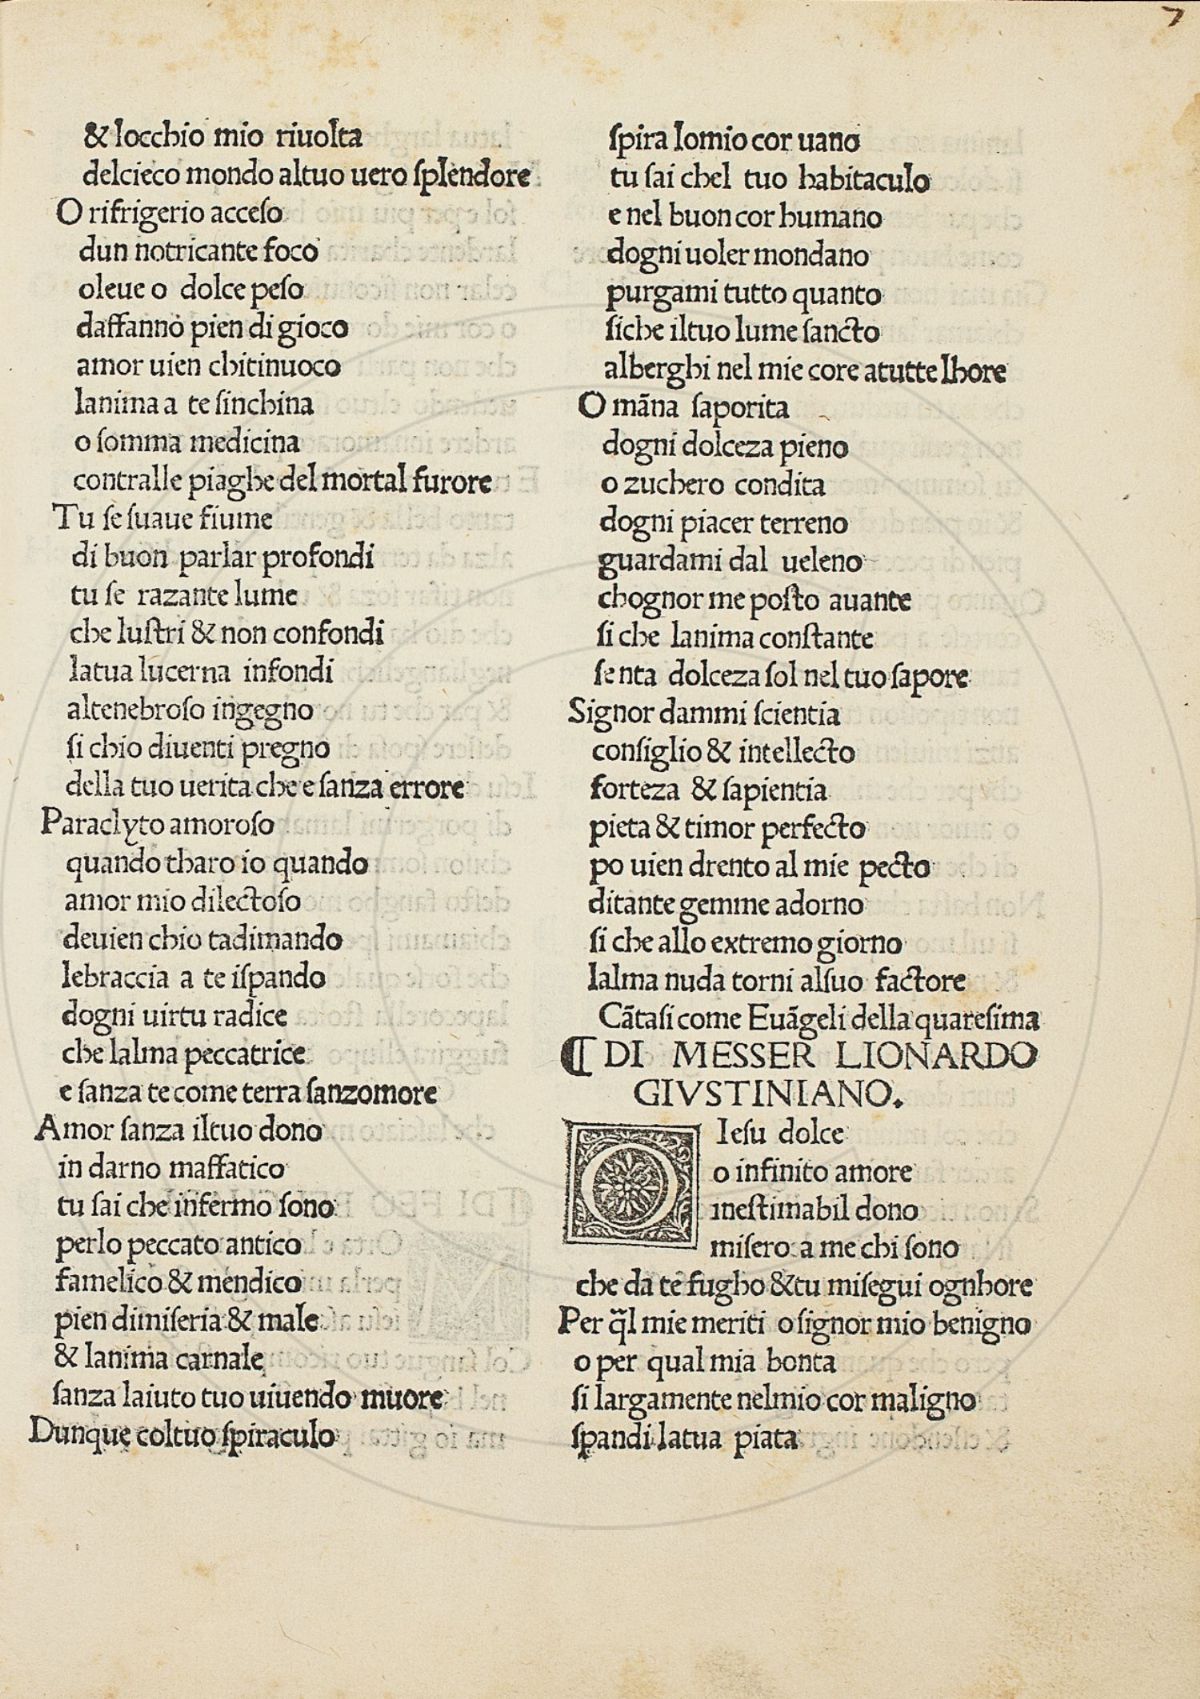 7
& locchio mio riuolta
delcieco mondo altuo uero ſplendore
O rifrigerio acceſo
dun notricante foco
oleue o dolce peſo
daffanno pien di gioco
amor uien chitinuoco
lanima a te ſinchina
o ſomma medicina
contralle piaghe del mortal furore
Tu ſe ſuaue fiume
di buon parlar profondi
tu ſe razante lume
che luſtri & non confondi
latua lucerna infondi
altenebroſo ingegno
ſi chio diuenti pregno
della tuo uerita che e ſanza errore
Paraclyto amoroſo
quando tharo io quando
amor mio dilectoſo
deuien chio tadimando
lebraccia a te iſpando
dogni uirtu radice
che lalma peccatrice
e ſanza te come terra ſanzomore
Amor ſanza iltuo dono
in darno maffatico
tu ſai che infermo ſono
perlo peccato antico
famelico & mendico
pien dimiſeria & male
& lanima carnale
ſanza laiuto tuo uiuendo muore
Dunque coltuo ſpiraculo
ſpira lomio cor uano
tu ſai chel tuo habitaculo
e nel buon cor humano
dogni uoler mondano
purgami tutto quanto
ſiche iltuo lume ſancto
alberghi nel mie core atutte lhore
O mãna ſaporita
dogni dolceza pieno
o zuchero condita
dogni piacer terreno
guardami dal ueleno
chognor me poſto auante
ſi che lanima conſtante
ſenta dolceza ſol nel tuo ſapore
Signor dammi ſcientia
conſiglio & intellecto
forteza & ſapientia
pieta & timor perfecto
po uien drento al mie pecto
ditante gemme adorno
ſi che allo extremo giorno
lalma nuda torni alſuo factore
Cãtaſi come Euãgeli della quareſima
⁋ DI MESSER LIONARDO
GIVSTINIANO.
O Ieſu dolce
o infinito amore
ineſtimabil dono
miſero a me chi ſono
che da te fugho & tu miſegui ognhore
Per q̃l mie meriti o ſignor mio benigno
o per qual mia bonta
ſi largamente nelmio cor maligno
ſpandi latua piata